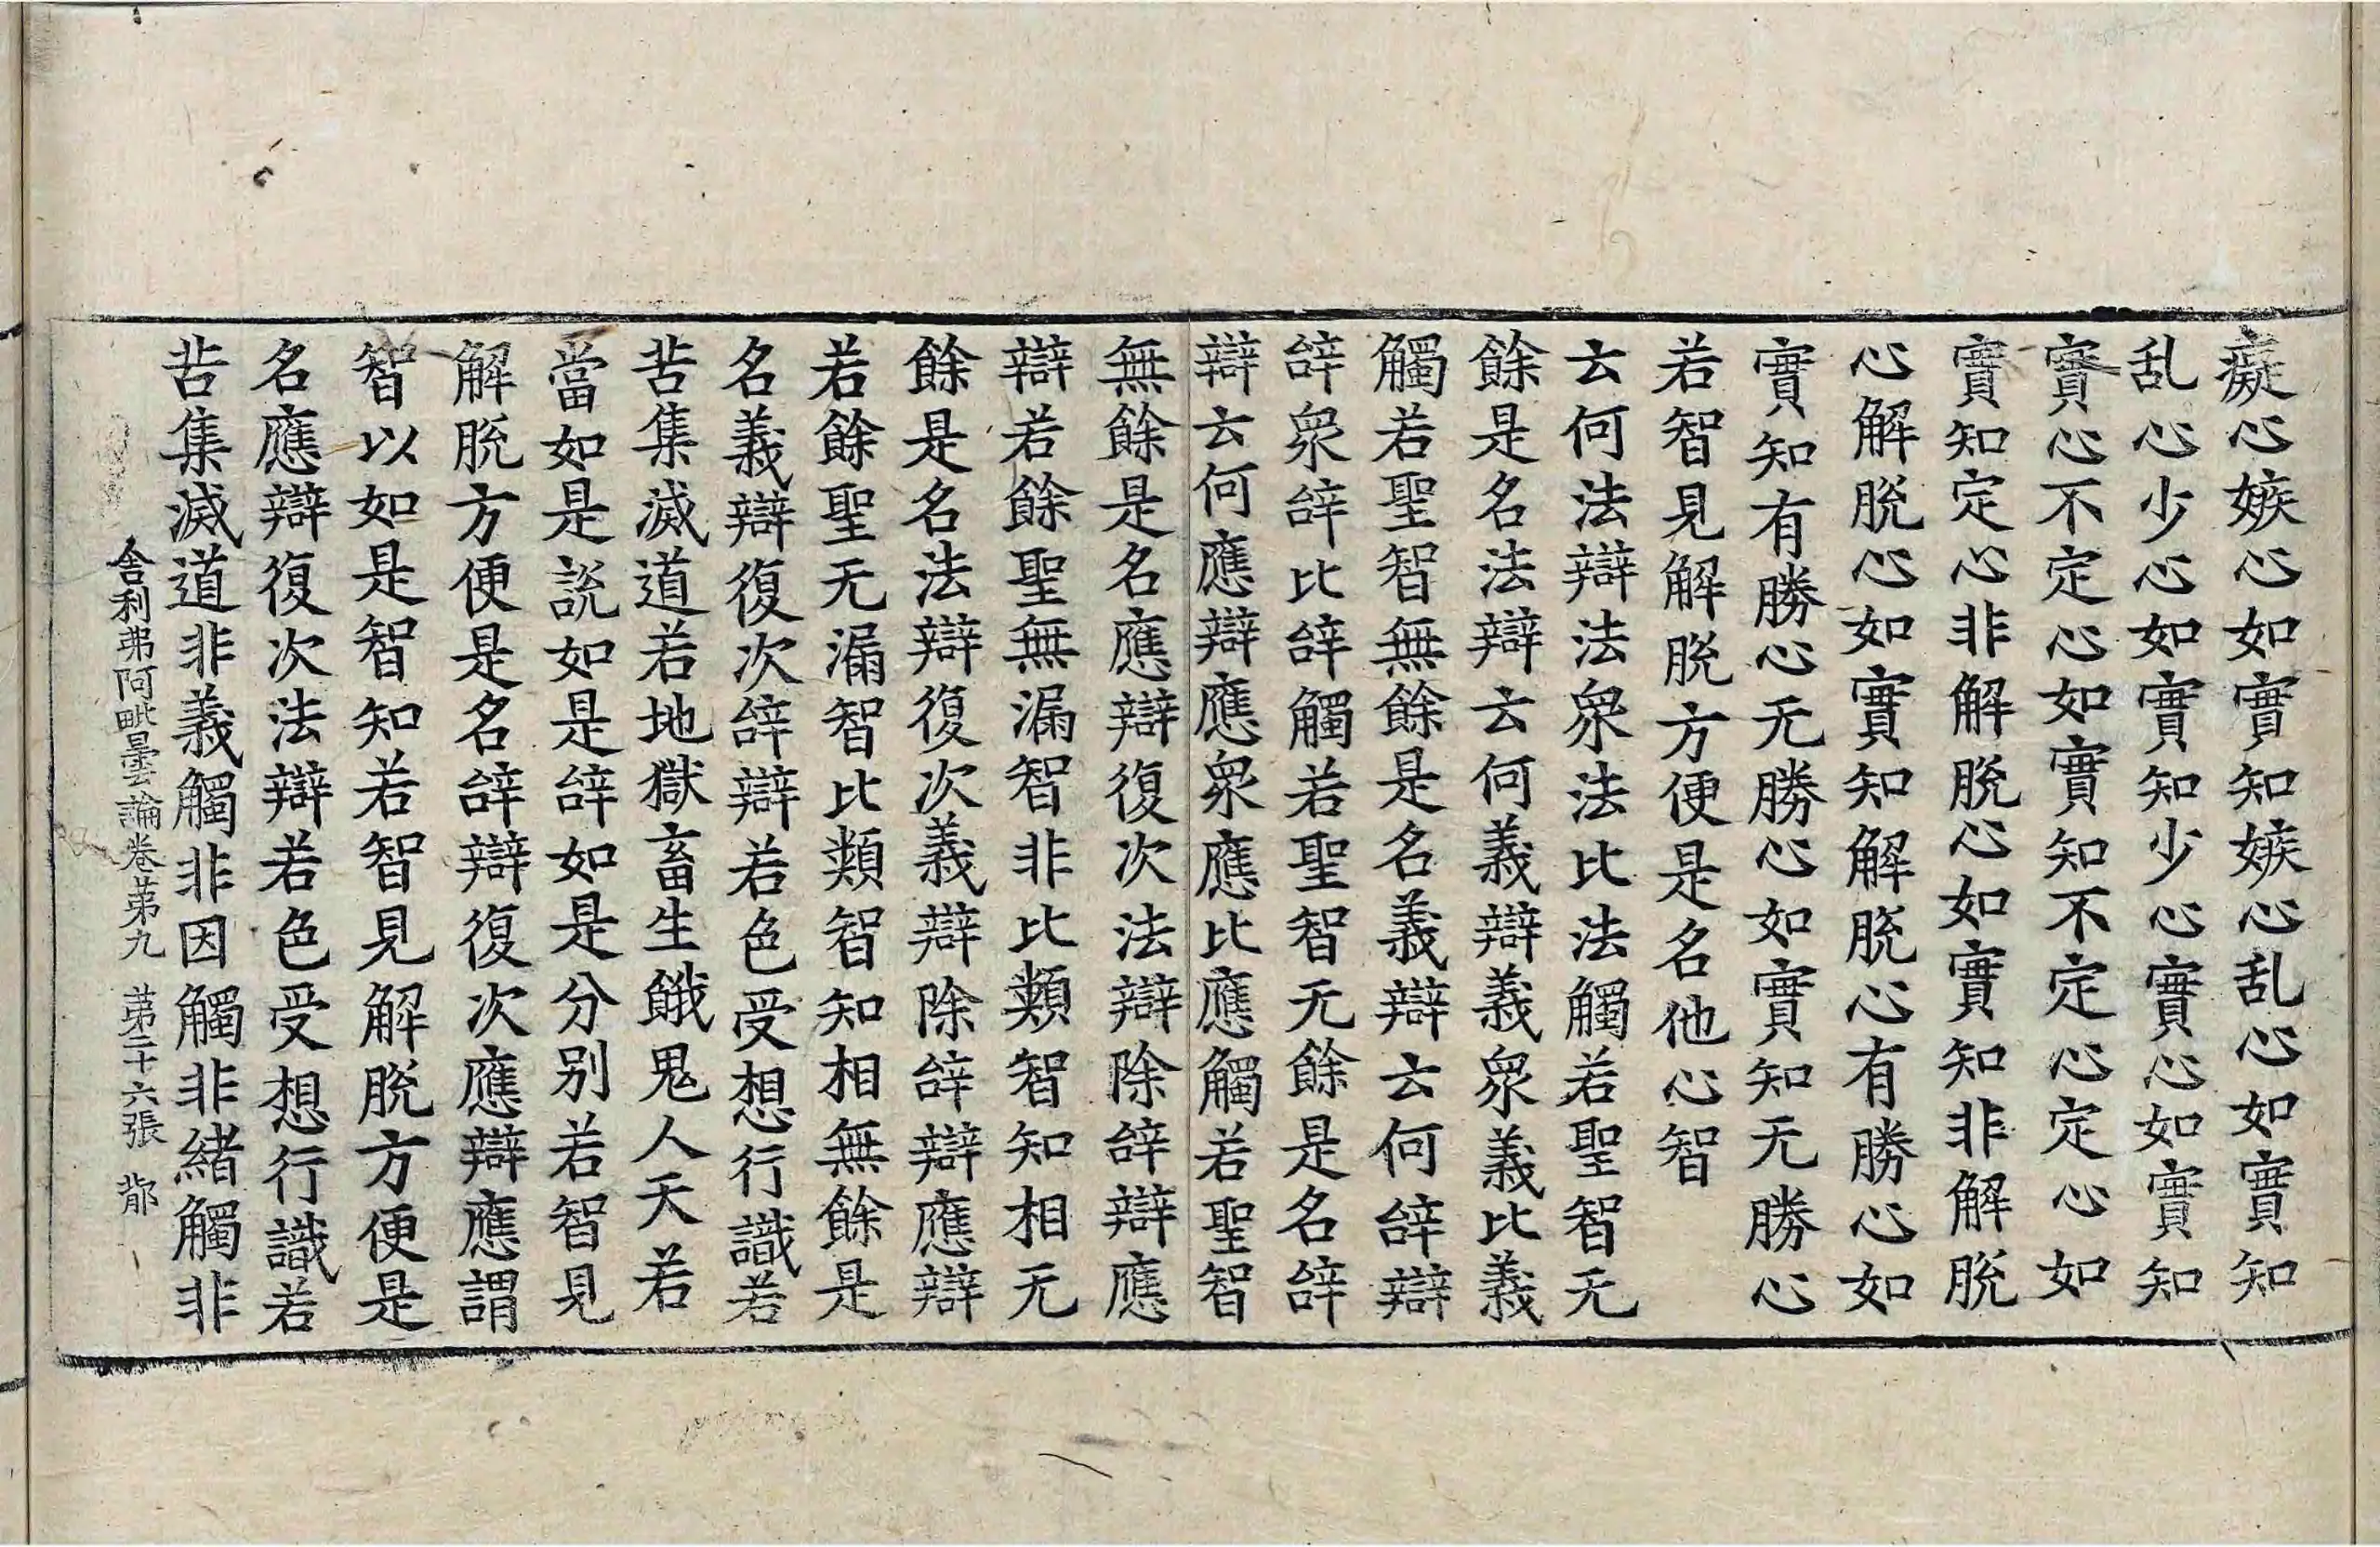 癡心嫉心如實知嫉心乱心如實知
乱心少心如實知少心實心如實知
實心不定心如實知不定心定心如
實知定心非解脫心如實知非解脫
心解脫心如實知解脫心有勝心如
實知有勝心无勝心如實知无勝心
若智見解脫方便是名他心智
云何法辯法眾法比法觸若聖智无
餘是名法辯云何義辯義眾義比義
觸若聖智無餘是名義辯云何辝辯
辝眾辝比辝觸若聖智无餘是名辝
辯云何應辯應眾應比應觸若聖智
無餘是名應辯復次法辯除辝辯應
辯若餘聖無漏智非比類智知相无
餘是名法辯復次義辯除辝辯應辯
若餘聖无漏智比類智知相無餘是
名義辯復次辝辯若色受想行識若
苦集滅道若地獄畜生餓鬼人天若
當如是說如是辝如是分別若智見
解脫方便是名辝辯復次應辯應謂
智以如是智知若智見解脫方便是
名應辯復次法辯若色受想行識若
苦集滅道非義觸非因觸非緒觸非
舍利弗阿毗曇論卷苐九 苐二十六張 邶